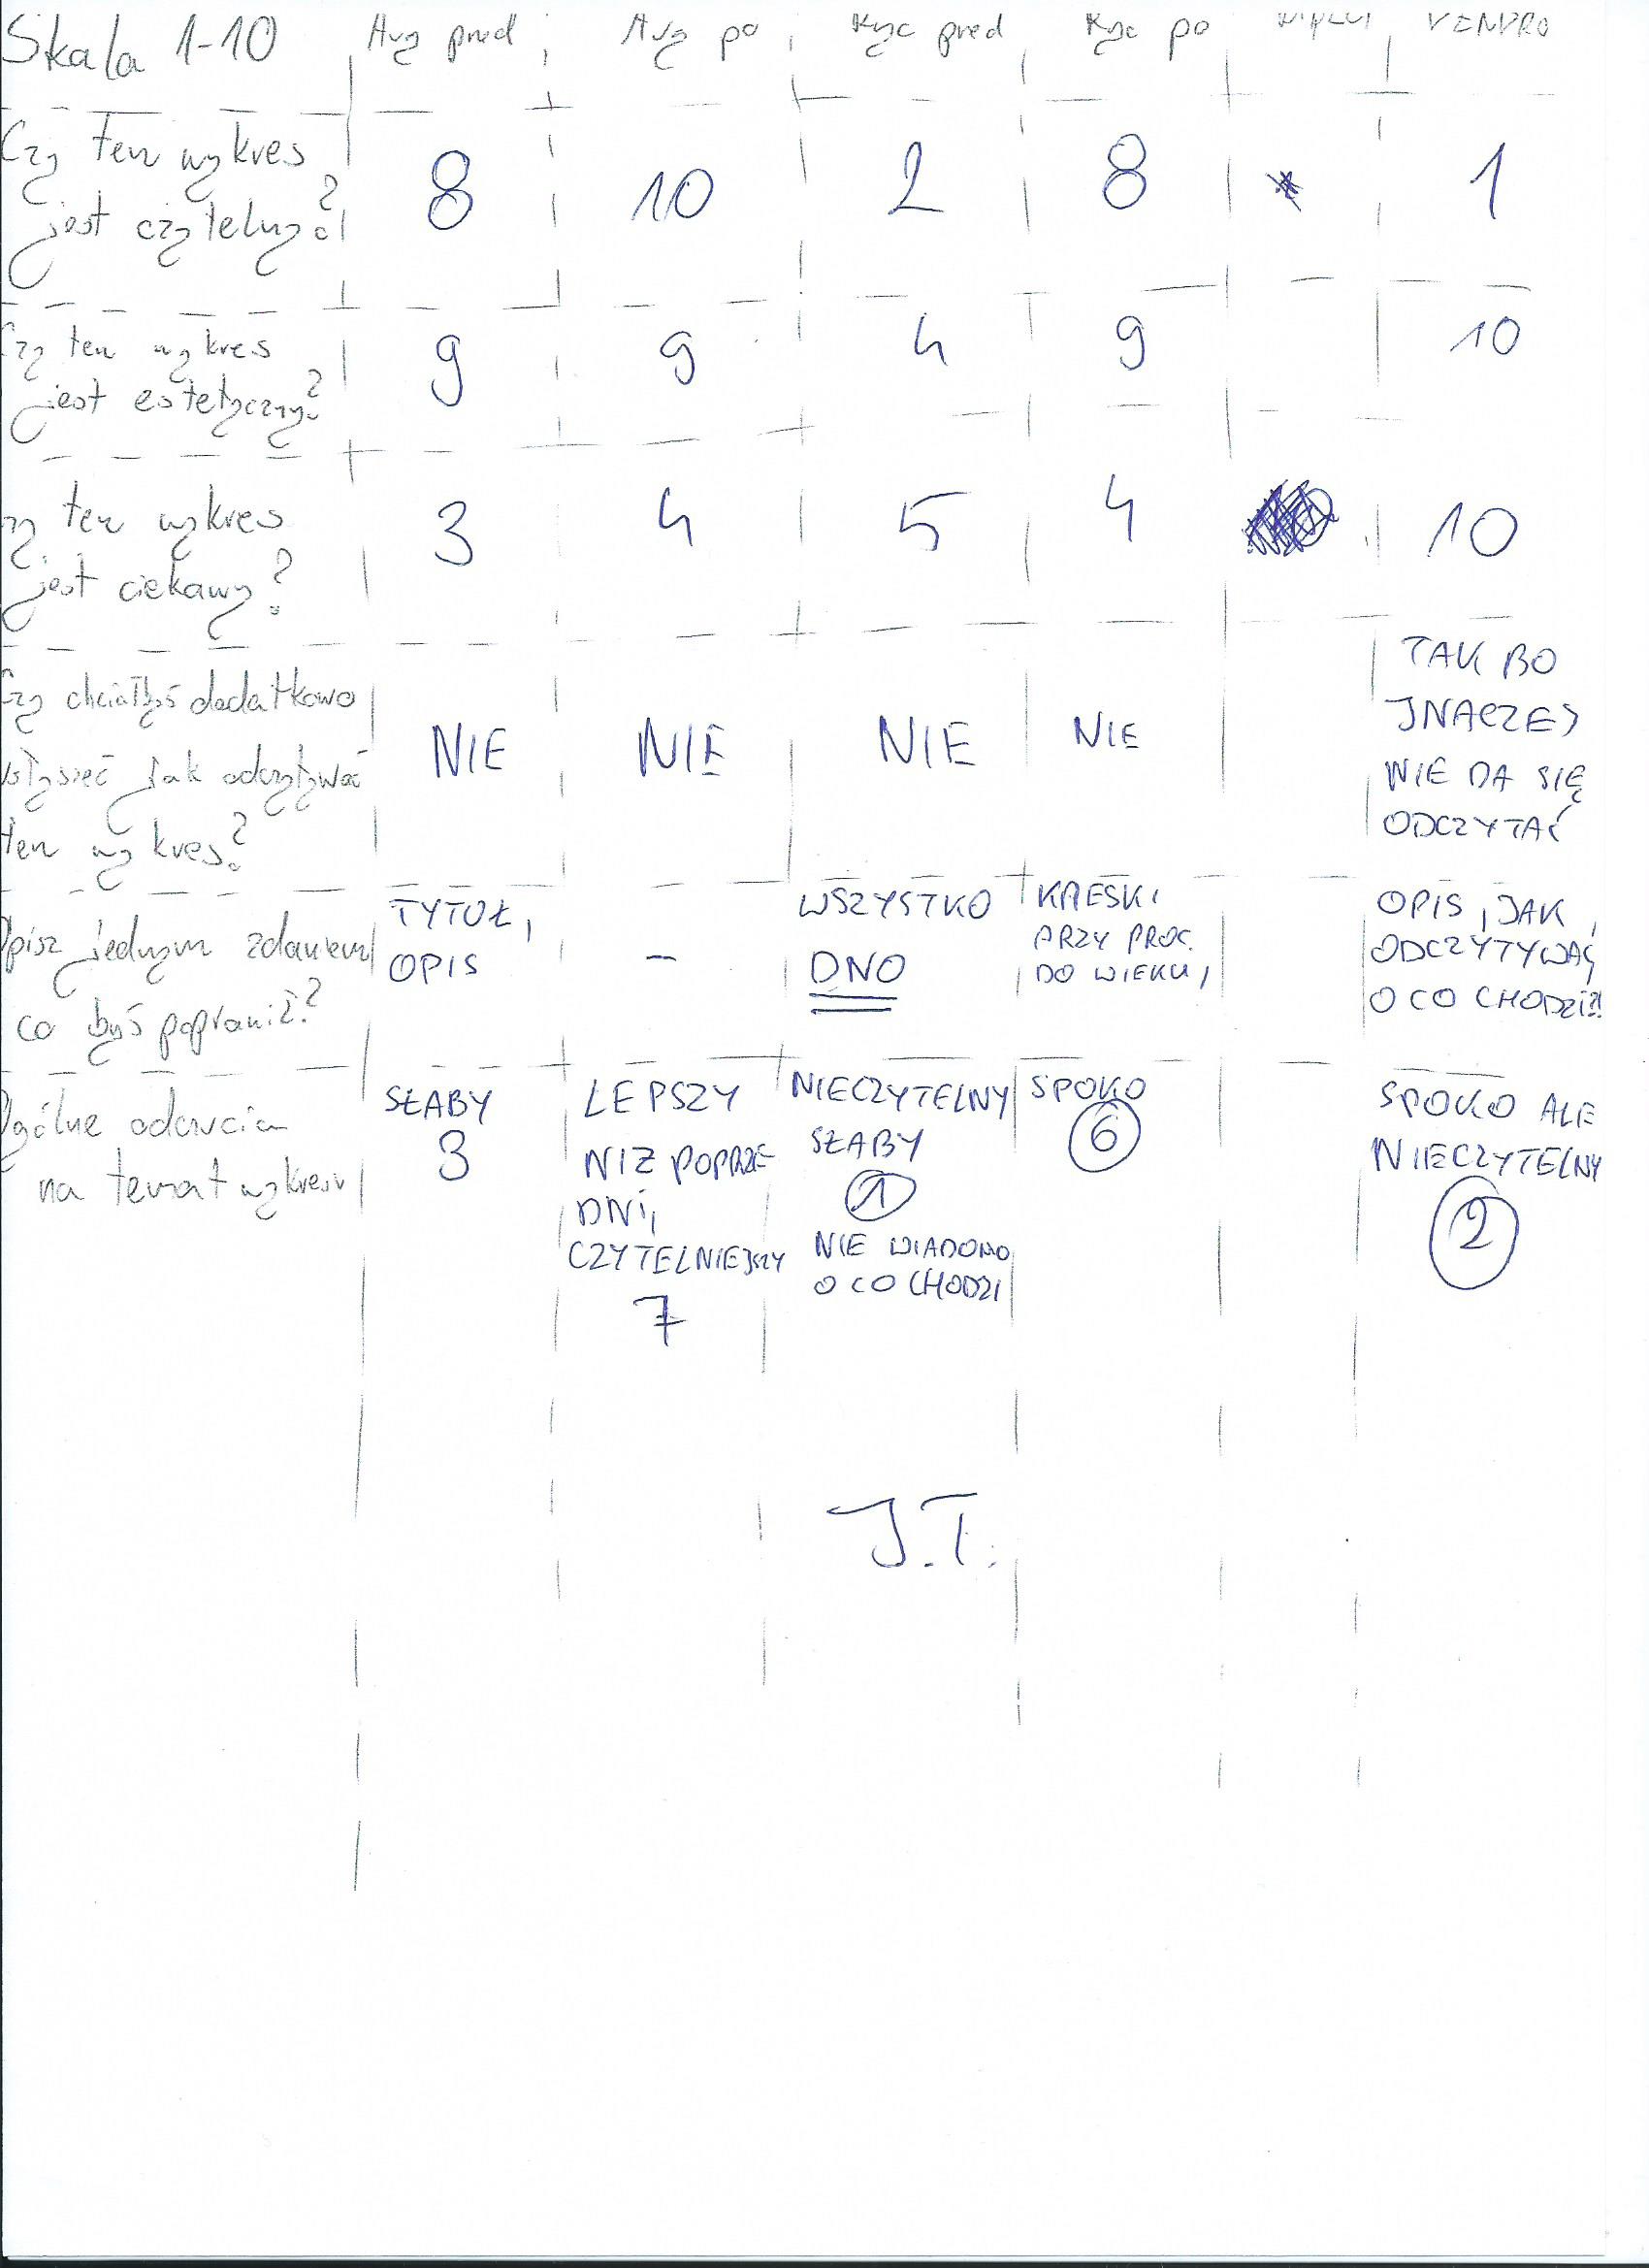 Skala 1-10 pred po pred po
Czy ten wykres
jest czytelny? 8 10 2 8 1
ten wykres
jest estetyczny? 9 9 4 9 10
ten wykres
jest ciekawy? 3 4 5 4 10
chciałbyś dodatkowo
jak odczytywać
ten wykres?
NIE NIE NIE NIE
TAK BO
INACZEJ
NIE DA SIĘ
ODCZYTAĆ
jednym zdaniem
co byś poprawił?
TYTUŁ,
OPIS
-
WSZYSTKO
DNO
KRESKI
PRZY PROC.
DO WIEKU,
OPIS, JAK
ODCZYTYWAĆ,
O CO CHODZI?!
odczucia
na temat wykresu
SŁABY
3
LEPSZY
NIZ POPRZE
DNI,
CZYTELNIEJSZY
7
NIECZYTELNY
SŁABY
1
NIE WIADOMO
O CO CHODZI
SPOKO
6
SPOKO ALE
NIECZYTELNY
2
J.T.